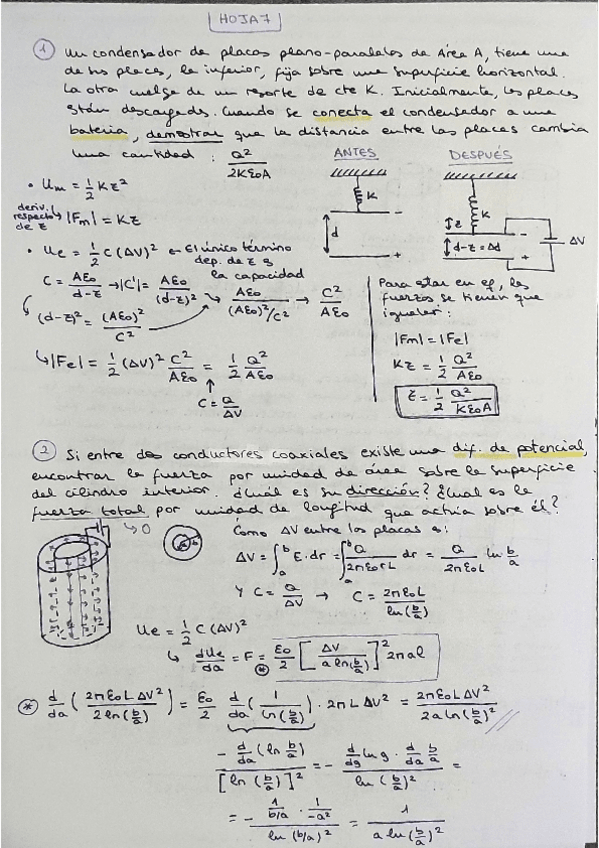 HOJA 7
① Un condensador de placas plano-paralelas de Área A, tiene una
de sus placas, la inferior, fija sobre una superficie horizontal.
La otra cuelga de un resorte de cte K. Inicialmente, las placas
están descargadas. Cuando se conecta el condensador a una
batería, demostrar que la distancia entre las placas cambia
una cantidad: Q²/2Kε₀A
ANTES
DESPUÉS
K
d
-
+
K
z
d-z = Δd
-
+
ΔV
• Um = 1/2 Kz²
deriv. respecto de z
|Fm| = Kz
• Ue = 1/2 C (ΔV)² ← El único término
dep. de z es
la capacidad
C = Aε₀/(d-z) → |C'| = Aε₀/(d-z)² ↘ Aε₀/((Aε₀)²/C²) → C²/Aε₀
(d-z)² = (Aε₀)²/C²
↳ |Fe| = 1/2 (ΔV)² C²/Aε₀ = 1/2 Q²/Aε₀
↑
C = Q/ΔV
Para estar en eq, las
fuerzas se tienen que
igualar:
|Fm| = |Fe|
Kz = 1/2 Q²/Aε₀
z = 1/2 Q²/Kε₀A
② Si entre dos conductores coaxiales existe una dif. de potencial,
encontrar la fuerza por unidad de área sobre la superficie
del cilindro interior. ¿Cuál es su dirección? ¿Cuál es la
fuerza total por unidad de longitud que actúa sobre él?
Como ΔV entre las placas es:
ΔV = ∫ₐᵇ E·dr = ∫ₐᵇ Q/2πε₀rL dr = Q/2πε₀L ln b/a
Y C = Q/ΔV → C = 2πε₀L/ln(b/a)
Ue = 1/2 C (ΔV)²
↳ dUe/da = F = ε₀/2 [ΔV/(a ln(b/a))]² 2πaL
⊛ d/da (2πε₀LΔV²/2ln(b/a)) = ε₀/2 d/da (1/ln(b/a)) · 2πLΔV² = 2πε₀LΔV²/2a ln(b/a)²
-d/da (ln b/a)/[ln(b/a)]² = - (d/dg ln g · d/da b/a)/ln(b/a)² =
= - (1/(b/a) · 1/-a²)/ln(b/a)² = 1/a ln(b/a)²